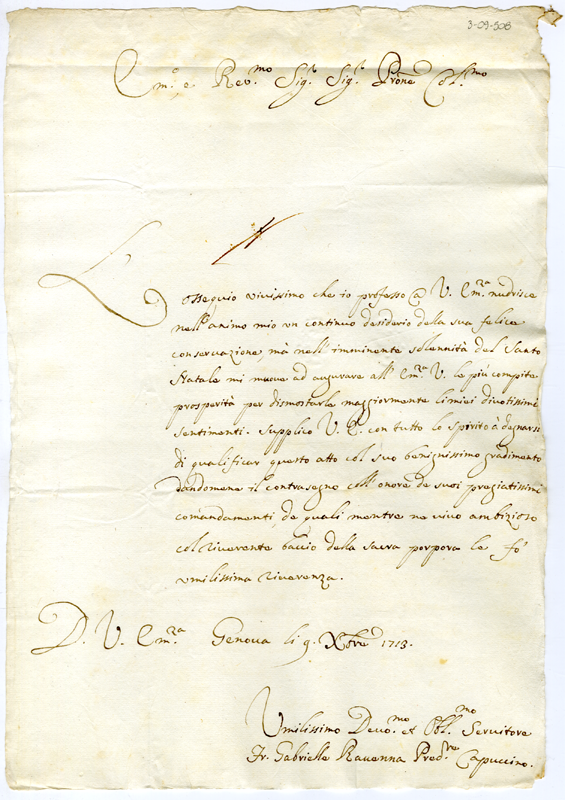 3-09-508
Em.º e Rev.mo Sig.r Sig.r Prône Col.mo
L'ossequio vivissimo che io professo @ V. Em.ra nudrisce
nell'animo mio un continuo desiderio della sua felice
conservazione, mà nell'imminente solennità del Santo
Natale mi muove ad augurare all'Em.ra V. le più compite
prosperità per dimostrarle maggiormente li miei divotissimi
sentimenti. Supplico V. E. con tutto lo spirito à degnarsi
di qualificar questo atto col suo benignissimo gradimento
dandomene il contrasegno coll'onore de suoi pregiatissimi
comandamenti, de quali mentre ne vivo ambizioso
col riverente baccio della sacra porpora le fò
umilissima riverenza.
D. V. Em.ra Genova li 9. Xbre 1713.
Umilissimo Devo.mo et Obl.mo Servitore
Fr. Gabrielle Ravenna Pred.re Capuccino.